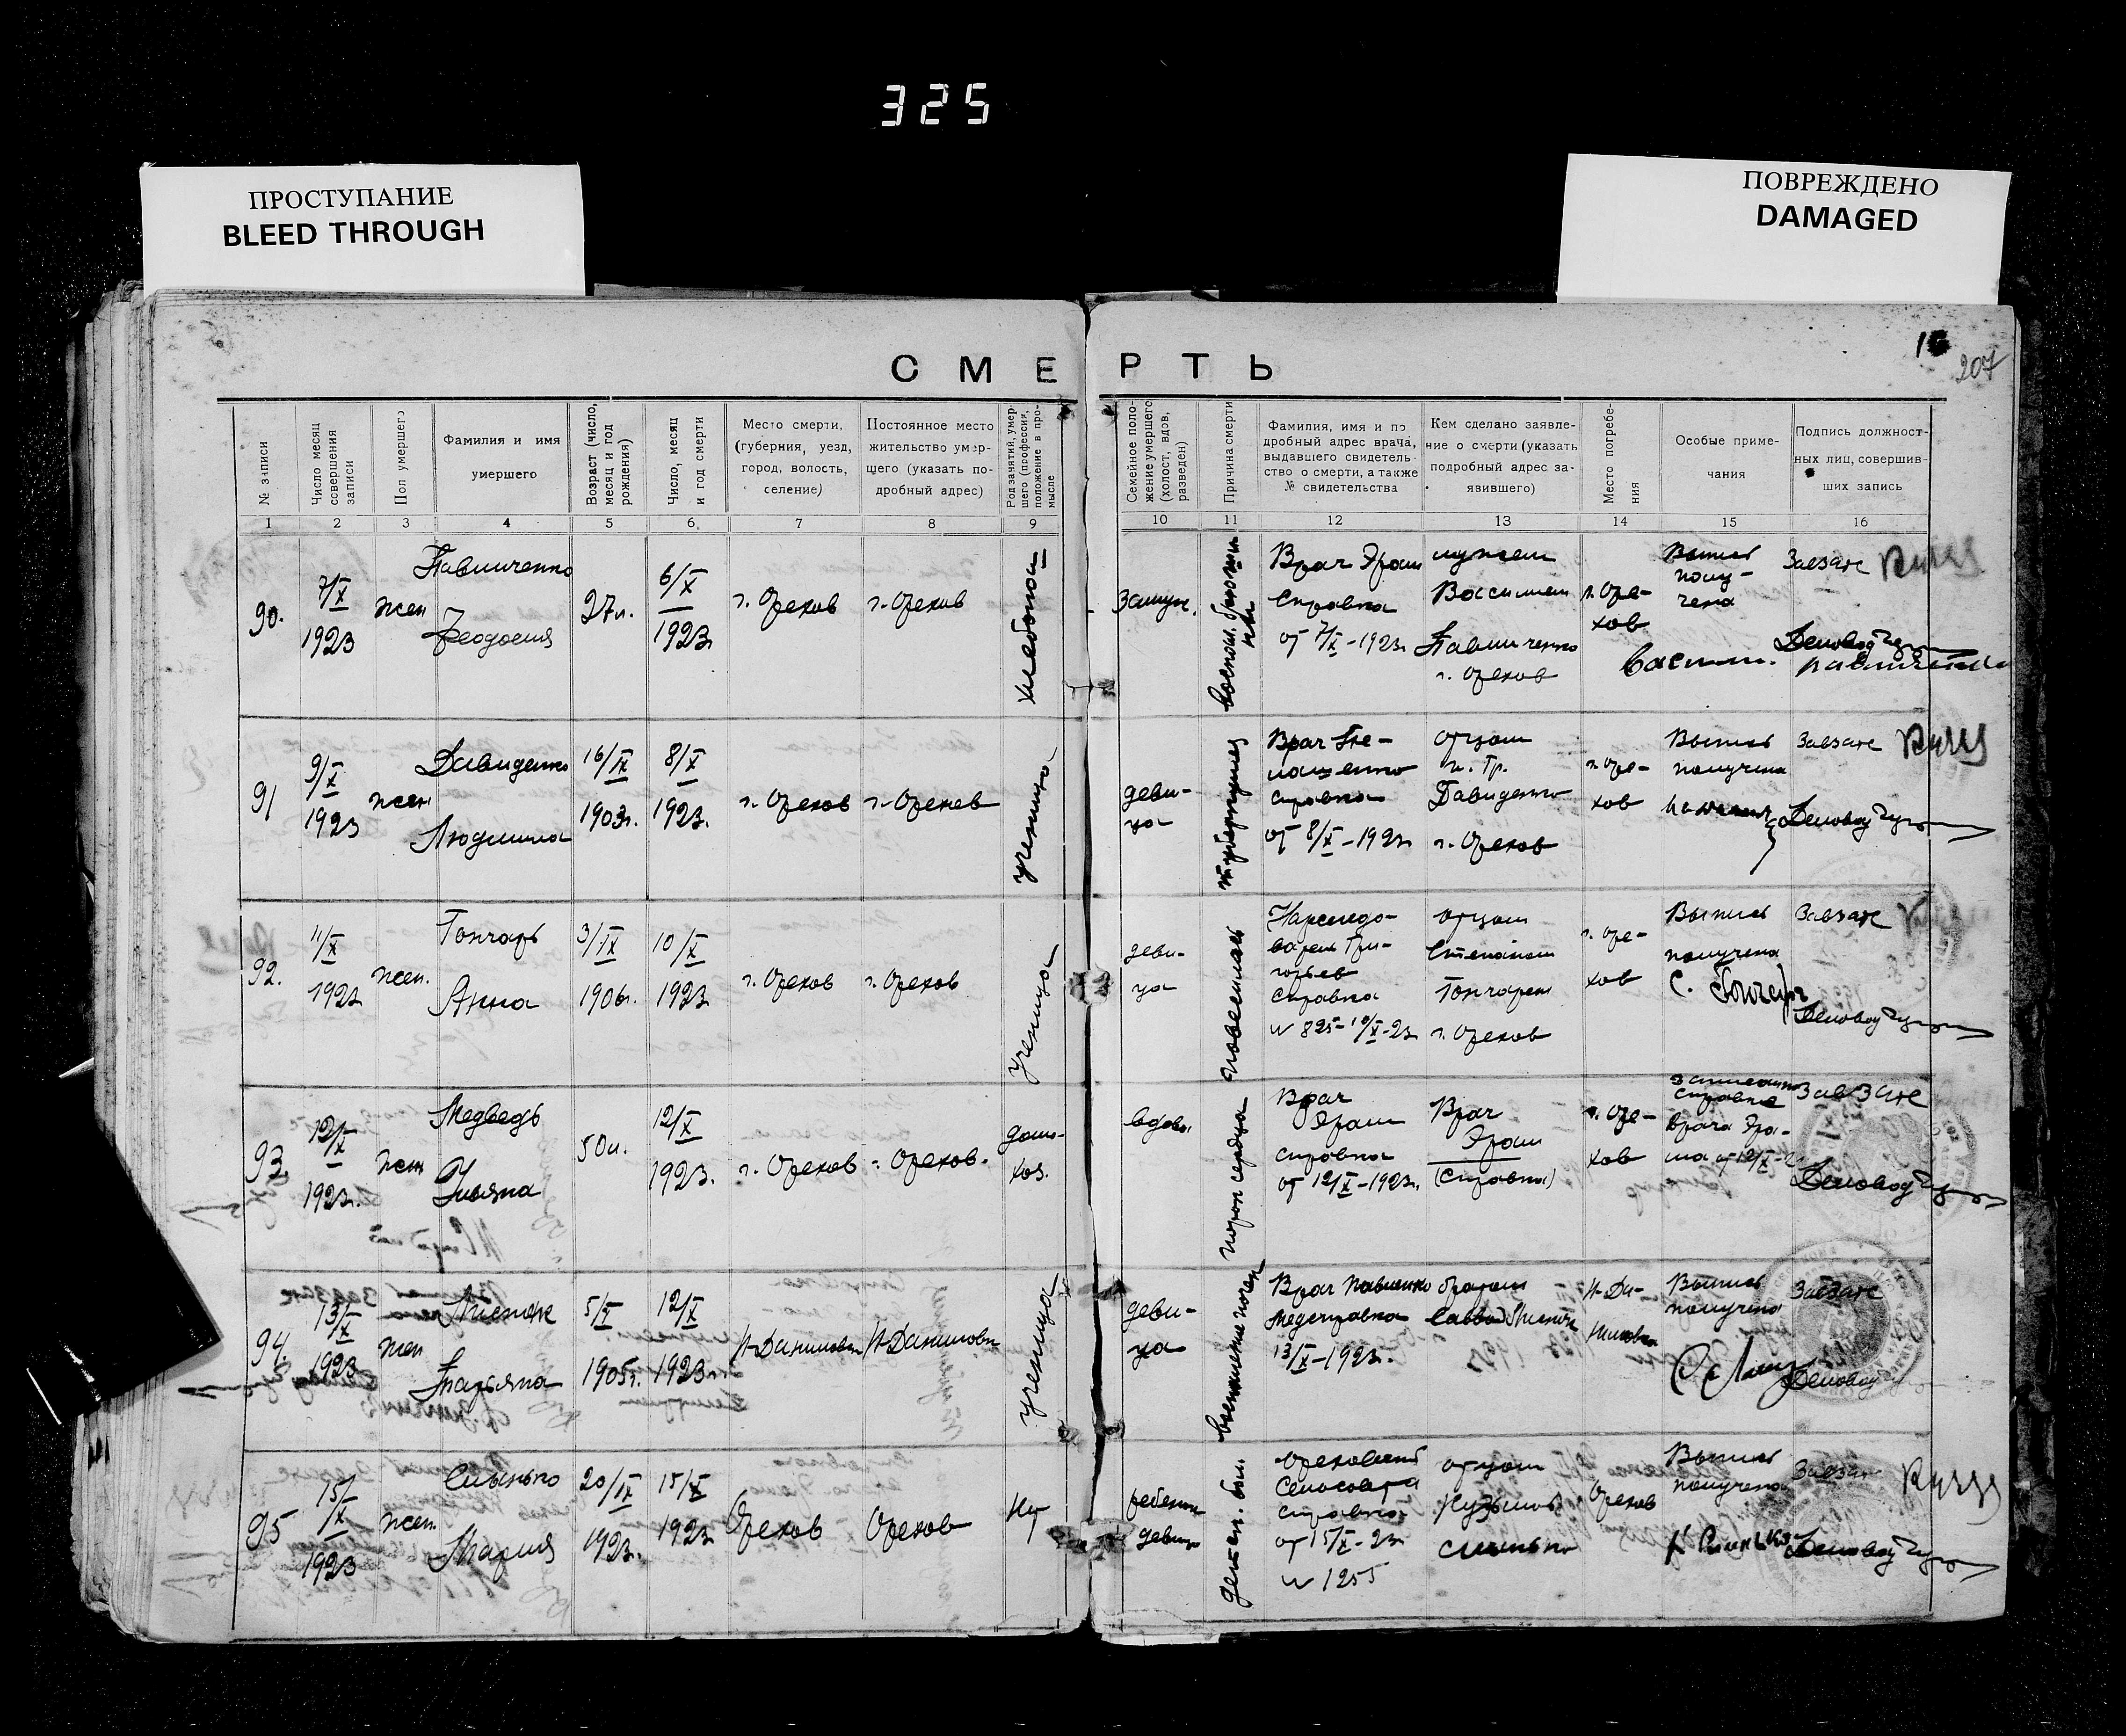 325
ПРОСТУПАНИЕ
BLEED THROUGH
ПОВРЕЖДЕНО
DAMAGED
207
СМЕРТЬ
№ записи
Число месяц совершения записи
Пол умершего
Фамилия и имя
умершего
Возраст (число, месяц и год рождения)
Число, месяц и год смерти
Место смерти,
(губерния, уезд,
город, волость,
селение)
Постоянное место
жительство умер-
щего (указать по-
дробный адрес)
Род занятий, умер-
шего (профессия,
положение в про-
мысле
Семейное поло-
жение умершего
(холост, вдов,
разведен)
Причина смерти
Фамилия, имя и по
дробный адрес врача,
выдавшего свидетель-
ство о смерти, а также
№ свидетельства
Кем сделано заявле-
ние о смерти (указать
подробный адрес за-
явившего)
Место погребе-
ния
Особые приме-
чания
Подпись должност-
ных лиц, совершив-
ших запись
1 2 3 4 5 6 7 8 9 10 11 12 13 14 15 16
90.
7/X
1923
жен
Павличенко
Феодосия
27л.
6/X
1923
г. Орехов
г. Орехов
хлебопаш
замуж.
Врач Эрлих
справка
от 7/X-1923г
мужем
Василием
Павличенко
г. Орехов
г. Оре-
хов
Выпись
полу-
чена
Завзагс
Деловод
91
9/X
1923
жен
Давиденко
Людмила
16/IX
1903г.
8/X
1923.
г. Орехов
г. Орехов
ученица
деви-
ца
туберкулез
Врач
справка
от 8/X-1923
отцом
Давиденко
г. Орехов
г. Оре-
хов
Выпись
получена
Завзагс
Деловод
92.
11/X
1923
жен.
Гончарь
Анна
3/IX
1906г.
10/X
1923
г. Орехов
г. Орехов
ученица
деви-
ца
повесилась
Нарследо-
ватель Гри-
горьев
справка
N 825-10/X-23
отцом
Степаном
Гончарем
г. Орехов
г. Оре-
хов
Выпись
получена
С. Гончарь
Завзагс
Деловод
93.
12/X
1923г.
жен
Медведь
Ульяна
50л.
12/X
1923.
г. Орехов
г. Орехов.
домо-
хоз.
вдова
порок сердца
Врач
справка
от 12/X-1923г.
Врач
(справка)
г. Оре-
хов
справке
врача
от 12/X-2
Завзагс
Деловод
94.
13/X
1923
жен
Татьяна
5/X
1905г.
12/X
1923
Н-Даниловка
Н-Даниловка
ученица
деви-
ца
воспаление почек
Врач Павленко
медсправка
13/X-1923.
братом
Саввой
Н-Да-
ниловка
Выпись
получена
Завзагс
Деловод
95
15/X
1923
жен.
Слынько
Мария
20/IX
1923.
15/X
1923
Орехов
Орехов
нет
ребенок
девица
Ореховский
Сельсовет
справка
от 15/X-23
N 1255
отцом
Кузьмой
Слынько
Орехов
Выпись
получена
К Слинько
Завзагс
Деловод